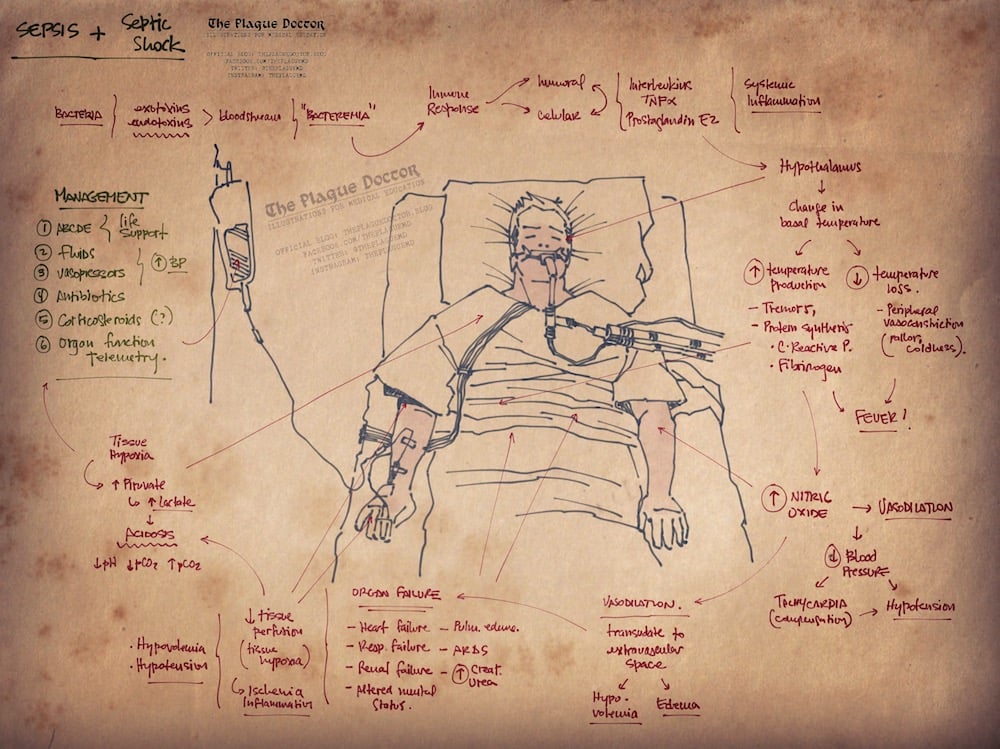 SEPSIS + Septic Shock
The Plague Doctor
ILLUSTRATIONS FOR MEDICAL EDUCATION
OFFICIAL BLOG: THEPLAGUEDOCTOR.BLOG
FACEBOOK.COM/THEPLAGUEMD
TWITTER: @THEPLAGUEMD
INSTAGRAM: THEPLAGUEMD
BACTERIA
exotoxins
endotoxins
> bloodstream
"BACTEREMIA"
Immune
Response
humoral
celular
Interleukins
TNFα
Prostaglandin E2
Systemic
Inflammation
Hypothalamus
↓
Change in
basal temperature
↑ temperature
production
- Tremors,
- Protein synthesis
• C. Reactive P.
• Fibrinogen
↓ temperature
loss.
- Peripheral
vasoconstriction
(pallor,
coldness).
FEVER!
The Plague Doctor
ILLUSTRATIONS FOR MEDICAL EDUCATION
OFFICIAL BLOG: THEPLAGUEDOCTOR.BLOG
FACEBOOK.COM/THEPLAGUEMD
TWITTER: @THEPLAGUEMD
INSTAGRAM: THEPLAGUEMD
MANAGEMENT
① ABCDE { life
support
② fluids
③ vasopressors
↑ BP
④ Antibiotics
⑤ Corticosteroids (?)
⑥ Organ function
Telemetry.
Tissue
Hypoxia
↑ Piruvate
↳ ↑ Lactate
↓
ACIDOSIS
↓pH ↓pCO2 ↑pCO2
↑ NITRIC
OXIDE
→ VASODILATION
↓
↓ Blood
Pressure
TACHYCARDIA
(compensation)
→ Hypotension
VASODILATION.
transudate to
extravascular
space
Hypo-
volemia
Edema
ORGAN FAILURE
- Heart failure - Pulm. edema.
- Resp. failure - ARDS
- Renal failure - ↑ Creat.
Urea
- Altered mental
Status.
• Hypovolemia
• Hypotension
↓ tissue
perfusion
(tissue
hypoxia)
↳ Ischemia
Inflammation